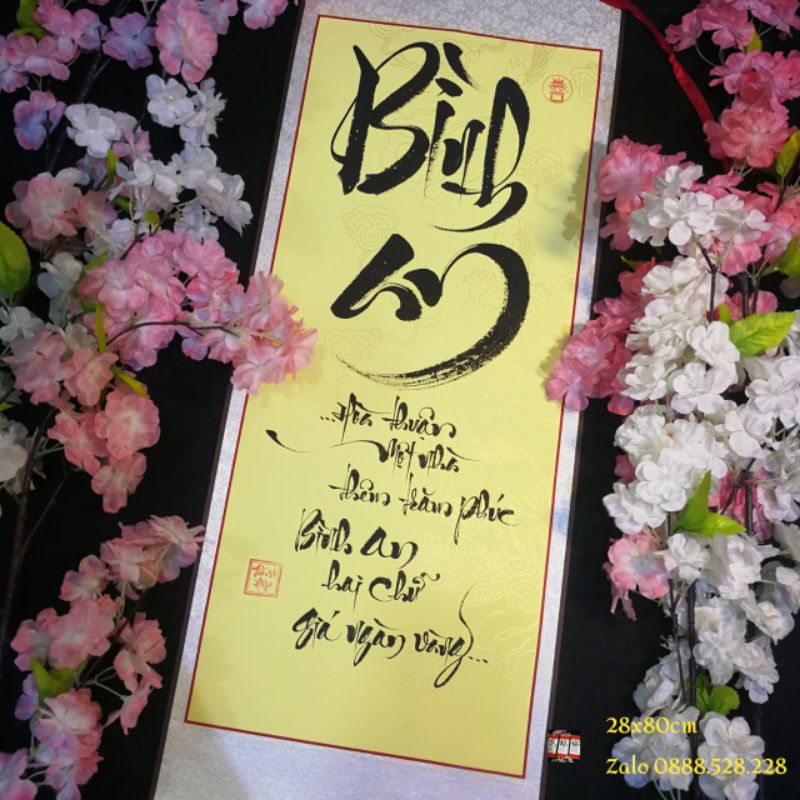 Bình
An
...Hòa thuận
một nhà
thêm trăm phúc
Bình An
hai chữ
giá ngàn vàng...
28x80cm
Zalo 0888.528.228